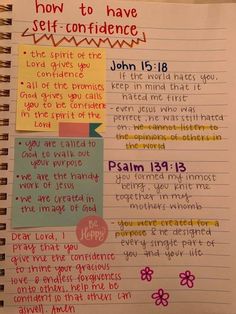 how to have
self-confidence
• the spirit of the
Lord gives you
confidence
• all of the promises
God gives you calls
you to be confident
in the spirit of the
Lord
• you are called to
God to walk out
your purpose
• we are the handy
work of Jesus
• we are created in
the image of God
BE
Happy
Dear Lord, I
pray that you
give me the confidence
to shine your gracious
love & endless forgiveness
onto others, help me be
confident so that others can
aswell. Amen
John 15:18
If the world hates you,
keep in mind that it
hated me first
• even Jesus who was
perfect, he was still hated
on. we cannot listen to
the opinions of others in
the world
Psalm 139:13
you formed my inmost
being, you knit me
together in my
mothers womb
• you were created for a
purpose & he designed
every single part of
you and your life